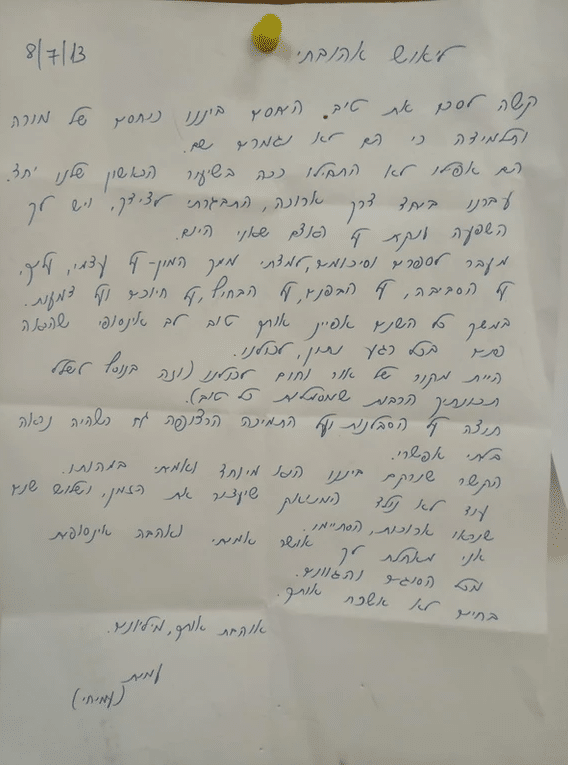 8/7/13
ליאוש אהובתי
קשה לסכם את טיב היחסים ביננו כיחסים של מורה
ותלמידה כי הם לא נגמרים שם.
הם אפילו לא התחילו ככה בשיעור הראשון שלנו יחד.
עברנו ביחד דרך ארוכה, התבגרתי לצידך, ויש לך
השפעה ענקית על האדם שאני היום.
מעבר לספרים וסיכומים, למדתי ממך המון- על עצמי, עליך,
על הסביבה, על הבפנים, על הבחוץ, על חיוכים ועל דמעות.
במשך כל השנים אפיין אותך טוב לב אינסופי שהיה
פתוח בכל רגע נתון, לכולנו.
היית מקור של אור וחום לכולנו (וזה בנוסף לשלל
תכונותיך הרבות שמסמלות כל טוב).
תודה על הסבלנות ועל התמיכה הרצופה גם כשהיה נראה
בלתי אפשרי.
הקשר שנרקם ביננו הוא מיוחד ואמיתי במהותו.
עוד לא נולד המיואש שיעצור את הזמן, ושלוש שנים
שנראו ארוכות, הסתיימו.
אני מאחלת לך אושר אמיתי ואהבה אינסופית
מכל הסוגים והגוונים.
בחיים לא אשכח אותך.
אוהבת אותך, מיליונים.
עמית
(עמיחי)